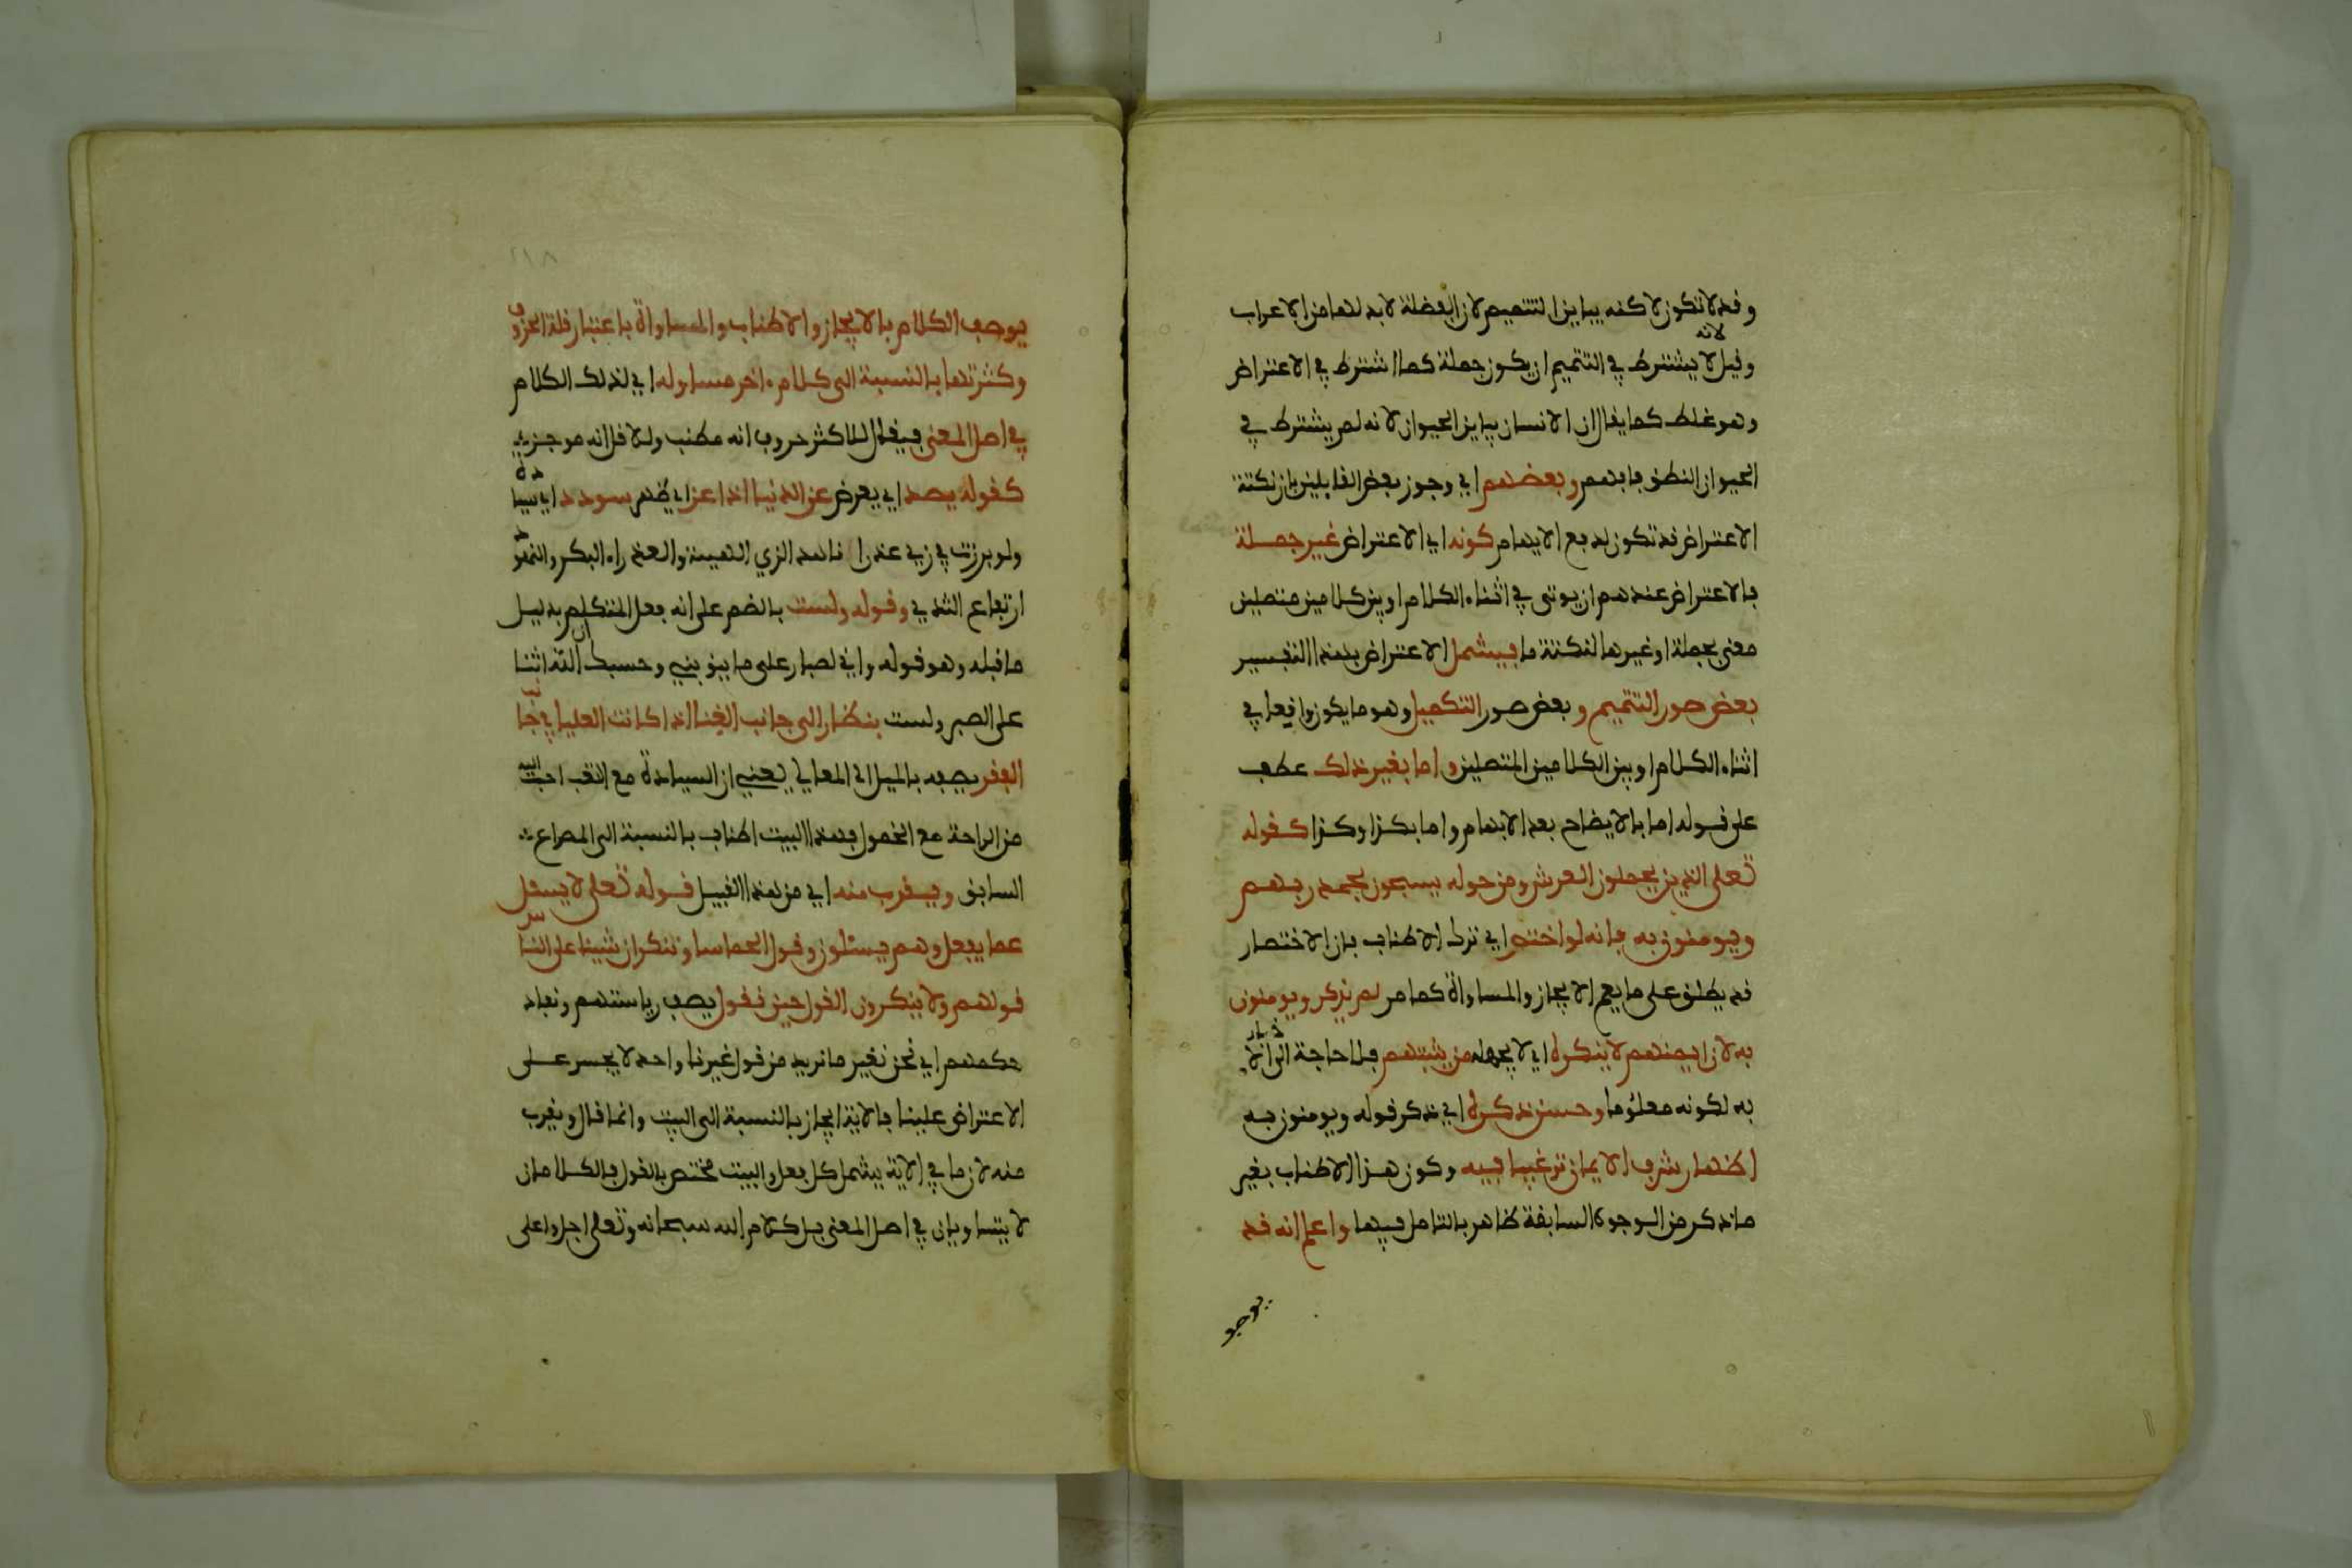 وقد لا تكون لاكنه يباين التتميم لان الفضلة لا بد لها من الاعراب
لانه
وقيل لا يشترط في التتميم ان يكون جملة كما اشترط في الاعتراض
وهو غلط كما يقال ان الانسان يباين الحيوان لانه لم يشترط في
الحيوان النطق فافهم وبعضهم اي وجوز بعض القائلين بان نكتة
الاعتراض قد تكون لدفع الايهام كونه اي الاعتراض غير جملة
فالاعتراض عندهم ان يوتى في اثناء الكلام او بين كلامين متصلين
معنى بجملة او غيرها لنكتة ما فيشمل الاعتراض بهذا التفسير
بعض صور التتميم و بعض صور التكميل وهو ما يكون واقعا في
اثناء الكلام او بين الكلامين المتصلين واما بغير ذلك عطف
على قوله اما بالايضاح بعد الابهام واما بكذا وكذا كقوله
تعلى الذين يحملون العرش ومن حوله يسبحون بحمد ربهم
ويومنون به فانه لو اختصر اي ترك الاطناب فان الاختصار
قد يطلق على ما يعم الايجاز والمساواة كما مر لم يذكر ويومنون
به لان ايمنهم لا ينكره اي لا يجهله من يثبتهم فلا حاجة الى الاخبار
به لكونه معلوما وحسن ذكره اي ذكر قوله ويومنون به
اظهار شرف الايمان ترغيبا فيه وكون هذا الاطناب بغير
ما ذكر من الوجوه السابقة ظاهر بالتامل فيها واعلم انه قد
يوصف
٢١٨
يوصف الكلام بالايجاز والاطناب والمساواة باعتبار قلة الحروف
وكثرتها بالنسبة الى كلام ءاخر مساو له اي لذلك الكلام
في اصل المعنى فيقال للاكثر حروف انه مطنب وللاقل انه موجز
كقوله يصد اي يعرض عن الدنيا اذا عن اي ظهر سودد اي سيادة
ولو برزت في زي عذراء ناهد الزي الهيئة والعذراء البكر والنهود
ارتفاع الثدي وقوله ولست بالضم على انه فعل المتكلم بدليل
ما قبله وهو قوله واني لصبار على ما ينوبني وحسبك ان الله اثنا
على الصبر ولست بنظار الى جانب الغنا اذا كانت العليا في جانب
الفقر يصفه بالميل الى المعالي يعني ان السيادة مع التعب احب اليه
من الراحة مع الخمول فهذا البيت اطناب بالنسبة الى المصراع
السابق ويقرب منه اي من هذا القبيل قوله تعلى لا يسئل
عما يفعل وهم يسئلون وقول الحماسي وننكر ان شينا على الناس
قولهم ولا ينكرون القول حين نقول يصف رياستهم ونفاذ
حكمهم اي نحن نغير ما نريد من قول غيرنا واحد لا يجسر على
الاعتراض علينا فالاية ايجاز بالنسبة الى البيت وانما قال ويقرب
منه لان ما في الاية يشمل كل فعل والبيت مختص بالقول فالكلامان
لا يتساويان في اصل المعنى بل كلام الله سبحانه وتعلى اجل واعلى